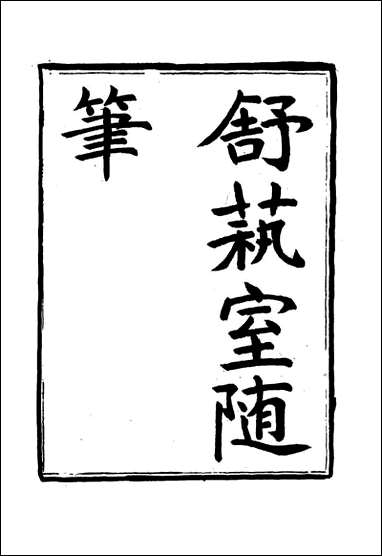 舒蓺室随
筆